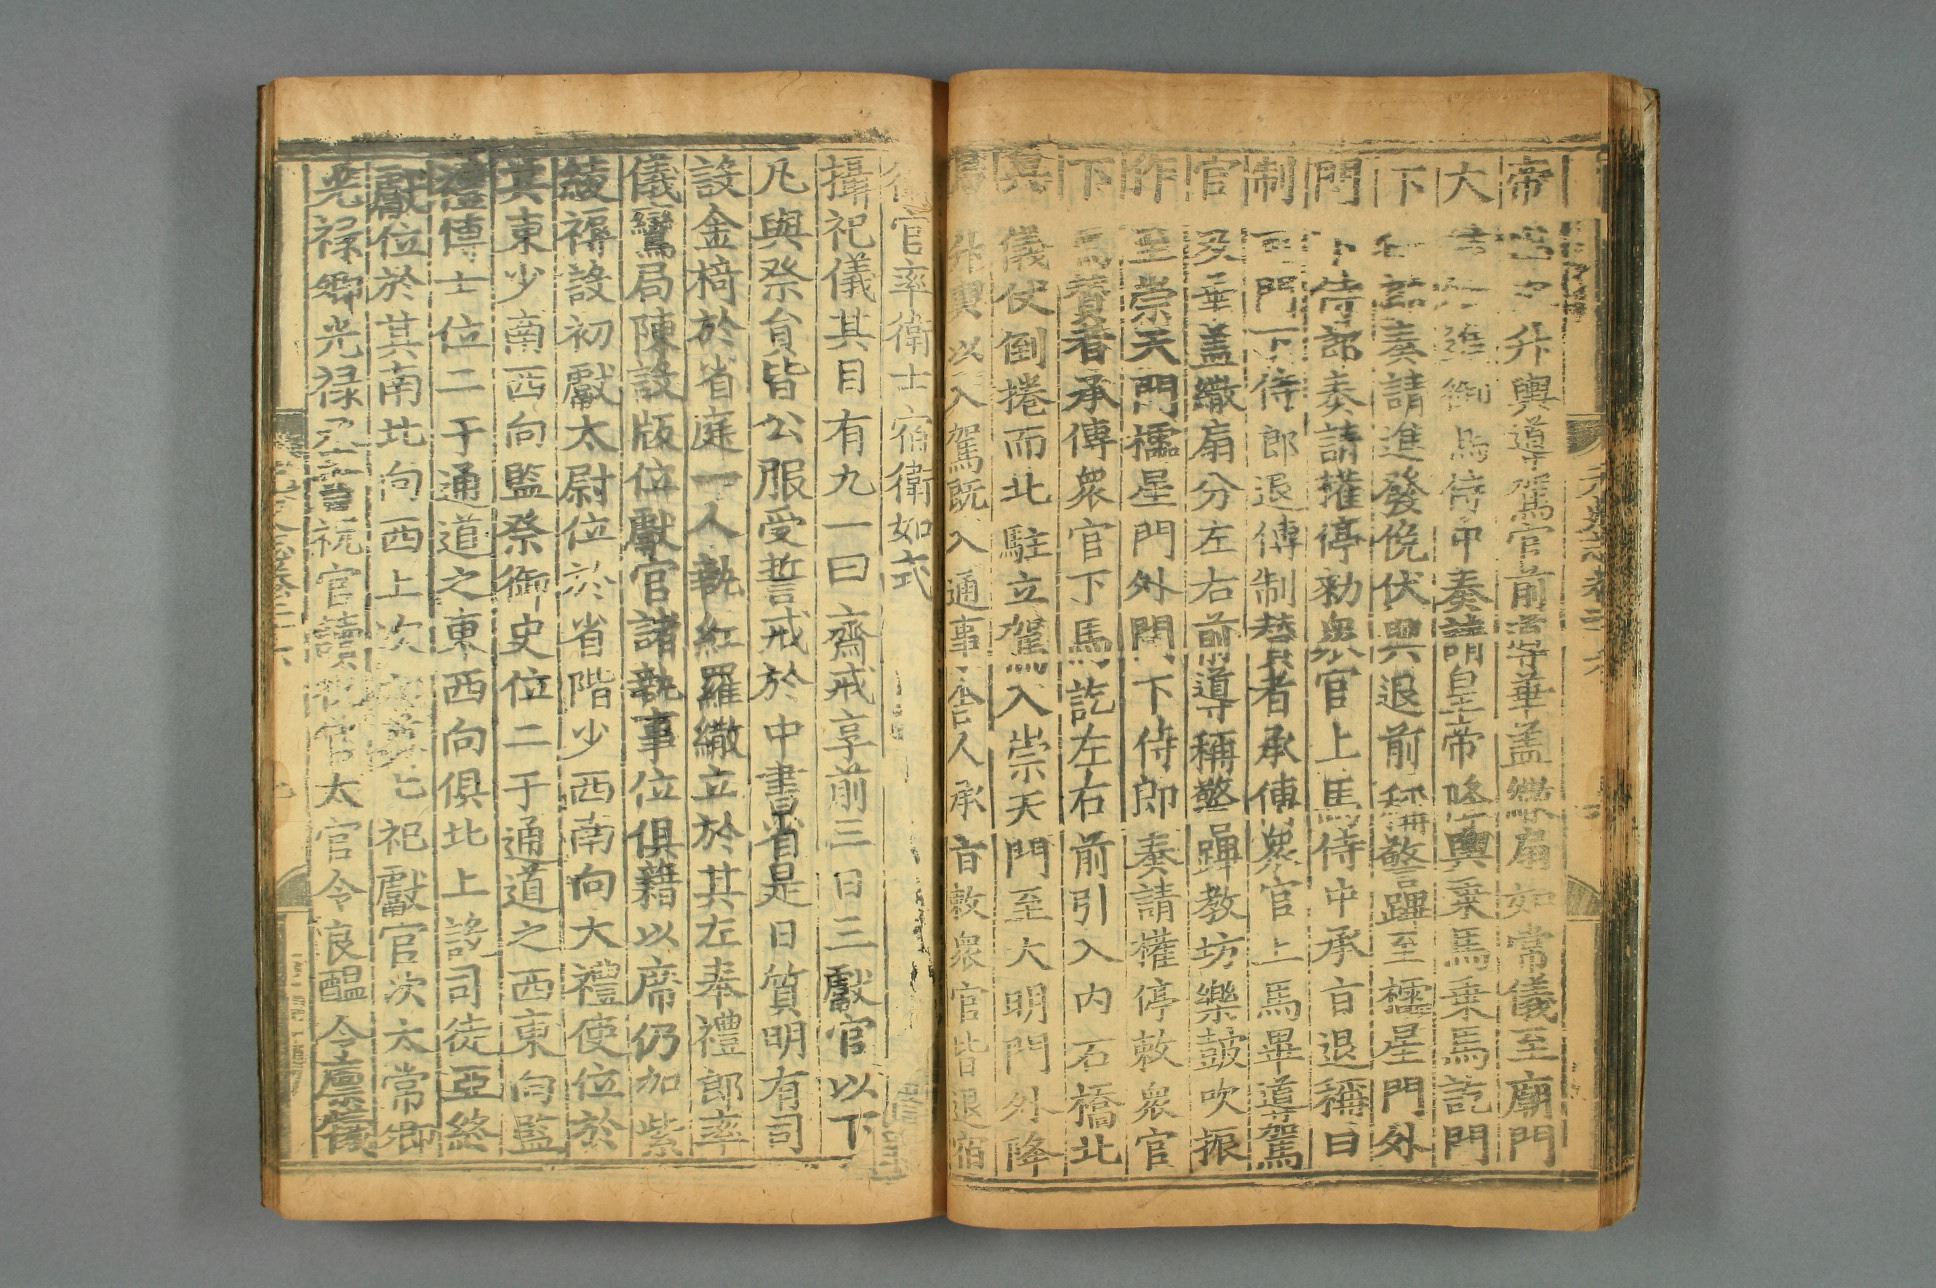 帝出宮升輿導駕官前導華蓋繖扇如常儀至廟門
大進御馬侍中奏請皇帝降輿乘馬乘馬訖門
下侍郎奏請進發俛伏興退前稱警蹕至櫺星門外
門下侍郎奏請權停勑衆官上馬侍中承旨退稱曰
制可門下侍郎退傳制贊者承傳衆官上馬畢導駕
官及華蓋繖扇分左右前導稱警蹕教坊樂鼓吹振
作至崇天門櫺星門外門下侍郎奏請權停敕衆官
下馬贊者承傳衆官下馬訖左右前引入內石橋北
與儀仗倒捲而北駐立駕入崇天門至大明門外降
馬升輿以入駕既入通事舍人承旨敕衆官皆退宿
元史志卷二十六
衛官率衛士宿衛如式
攝祀儀其目有九一曰齋戒享前三日三獻官以下
凡與祭員皆公服受誓戒於中書省是日質明有司
設金椅於省庭一人執紅羅繖立於其左奉禮郎率
儀鸞局陳設版位獻官諸執事位俱藉以席仍加紫
綾褥設初獻太尉位於省階少西南向大禮使位於
其東少南西向監祭御史位二于通道之西東向監
禮博士位二于通道之東西向俱北上設司徒亞終
獻位於其南北向西上次助奠七祀獻官次太常卿
光祿卿光祿丞書祝官讀祝官太官令良醞令廩犧
元史志卷二十六